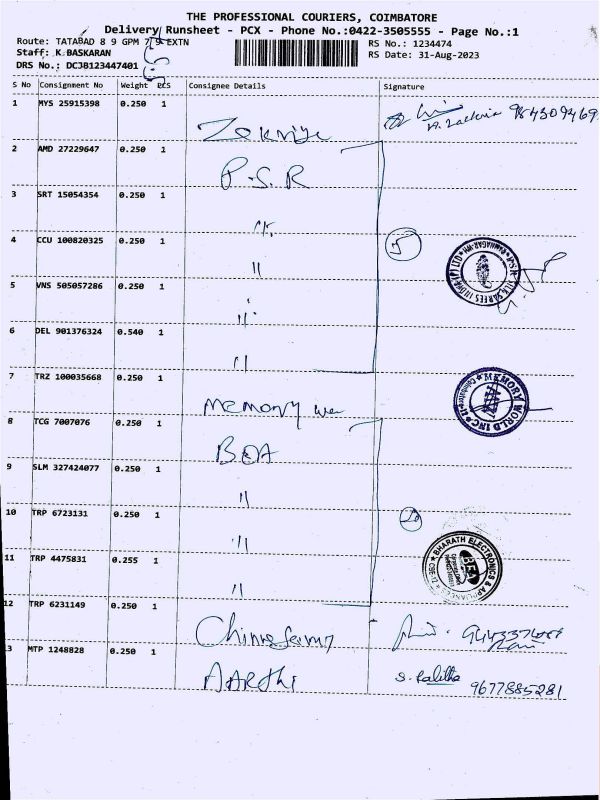 THE PROFESSIONAL COURIERS, COIMBATORE
Delivery Runsheet - PCX - Phone No.:0422-3505555 - Page No.:1
Route: TATABAD 8 9 GPM 7 9 EXTN
RS No.: 1234474
Staff: K BASKARAN
RS Date: 31-Aug-2023
DRS No.: DCJB123447401
S No Consignment No Weight PCS Consignee Details Signature
1 MYS 25915398 0.250 1
2 AMD 27229647 0.250 1 P.S.R
3 SRT 15054354 0.250 1 "
4 CCU 100820325 0.250 1 " 5
5 VNS 505057286 0.250 1 "
6 DEL 901376324 0.540 1 "
7 TRZ 100035668 0.250 1 Memory
MEMORY WORLD INC
8 TCG 7007076 0.250 1 BEA
9 SLM 327424077 0.250 1 "
10 TRP 6723131 0.250 1 "
11 TRP 4475831 0.255 1 "
BHARATH ELECTRONICS & APPLIANCES
BEA
12 TRP 6231149 0.250 1
13 MTP 1248828 0.250 1 AARthi S. Lalitha 9677885281